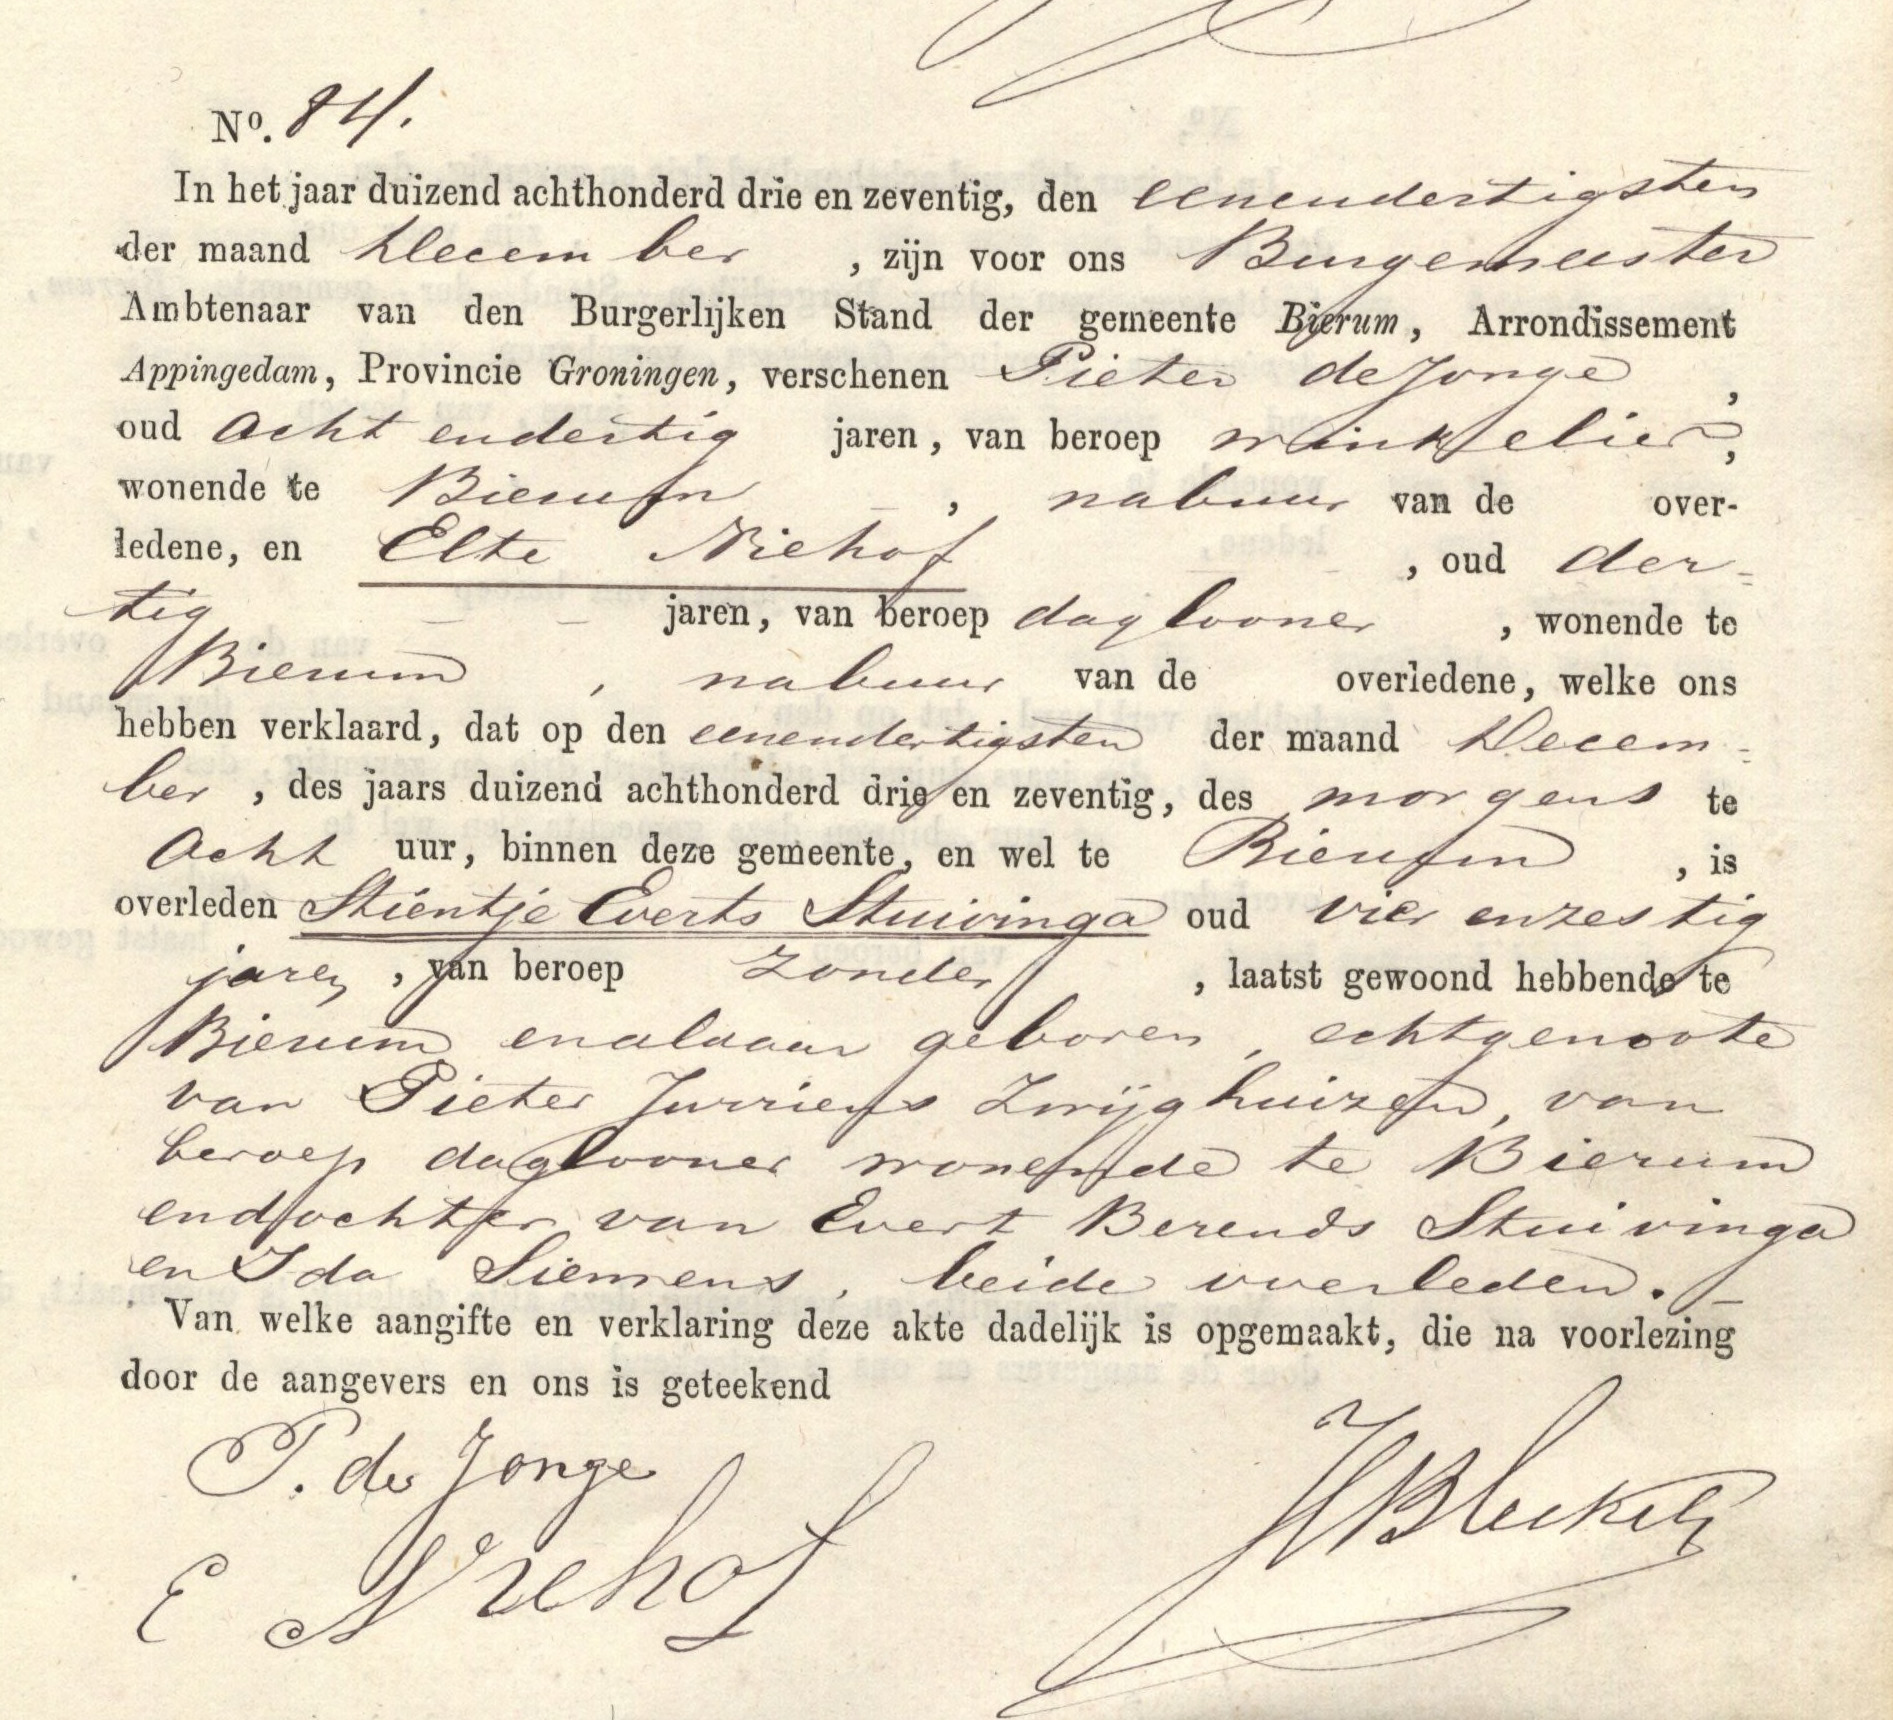 No. 84.
In het jaar duizend achthonderd drie en zeventig, den eenendertigsten
der maand December , zijn voor ons Burgemeester
Ambtenaar van den Burgerlijken Stand der gemeente Bierum, Arrondissement
Appingedam, Provincie Groningen, verschenen Pieter de Jonge ,
oud acht endertig jaren, van beroep winkelier,
wonende te Bierum , nabuur van de over-
ledene, en Elte Niehof , oud der-
tig jaren, van beroep daglooner , wonende te
Bierum , nabuur van de overledene, welke ons
hebben verklaard, dat op den eenendertigsten der maand Decem-
ber , des jaars duizend achthonderd drie en zeventig, des morgens te
acht uur, binnen deze gemeente, en wel te Bierum , is
overleden Stientje Everts Stuivinga oud vier enzestig
jaren , van beroep zonder , laatst gewoond hebbende te
Bierum enaldaar geboren, echtgenoote
van Pieter Jurriens Zwijghuizen, van
beroep daglooner wonende te Bierum
endochter van Evert Berends Stuivinga
en Ida Siemens, beide overleden. —
Van welke aangifte en verklaring deze akte dadelijk is opgemaakt, die na voorlezing
door de aangevers en ons is geteekend
P. de Jonge
E Niehof